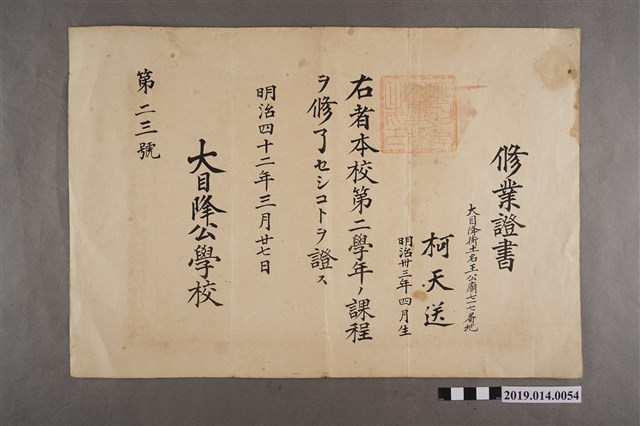 修業證書
大目降街土名王公廟七一七番地
柯天送
明治卅三年四月生
右者本校第二學年ノ課程
ヲ修了セシコトヲ證ス
明治四十二年三月廿七日
大目降公學校
第二三號
2019.014.0054